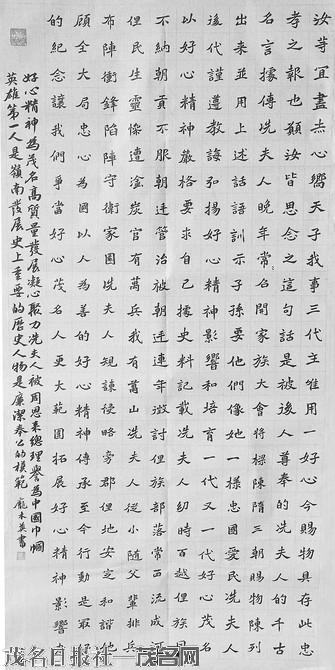 汝等宜盡赤心嚮天子我事三代主唯用一好心今賜物具存此忠
孝之報也願汝皆思念之這句話是被後人尊奉的冼夫人的千古
名言據傳冼夫人晚年常召開家族大會將樑陳隋三朝賜物陳列
出來並用上述話語訓示子孫要他們像她一樣忠國愛民冼夫人
後代謹遵教誨弘揚好心精神影響和培育一代又一代好心茂名
以好心精神嚴格要求自己據史料記載冼夫人時百越俚族
不納朝貢不服朝廷管治被朝廷連年徵討俚族部落常西流成河
俚民生靈慘遭塗炭官有萬兵我有萬山冼夫人從小隨父輩排兵
布陣衝鋒陷陣守衛家園冼夫人規諫侵略旁郡俚地安定和諧他
顧全大局忠心為國以人為善的好心精神傳承至今行動是最
的紀念讓我們爭當好心茂名人更大範圍拓展好心精神影響
好心精神為茂名高質量發展凝心聚力冼夫人被周恩來總理譽為中國巾幗
英雄第一人是嶺南發展史上重要的歷史人物是廉潔奉公的模範 龐木英書
茂名日报社—茂名网